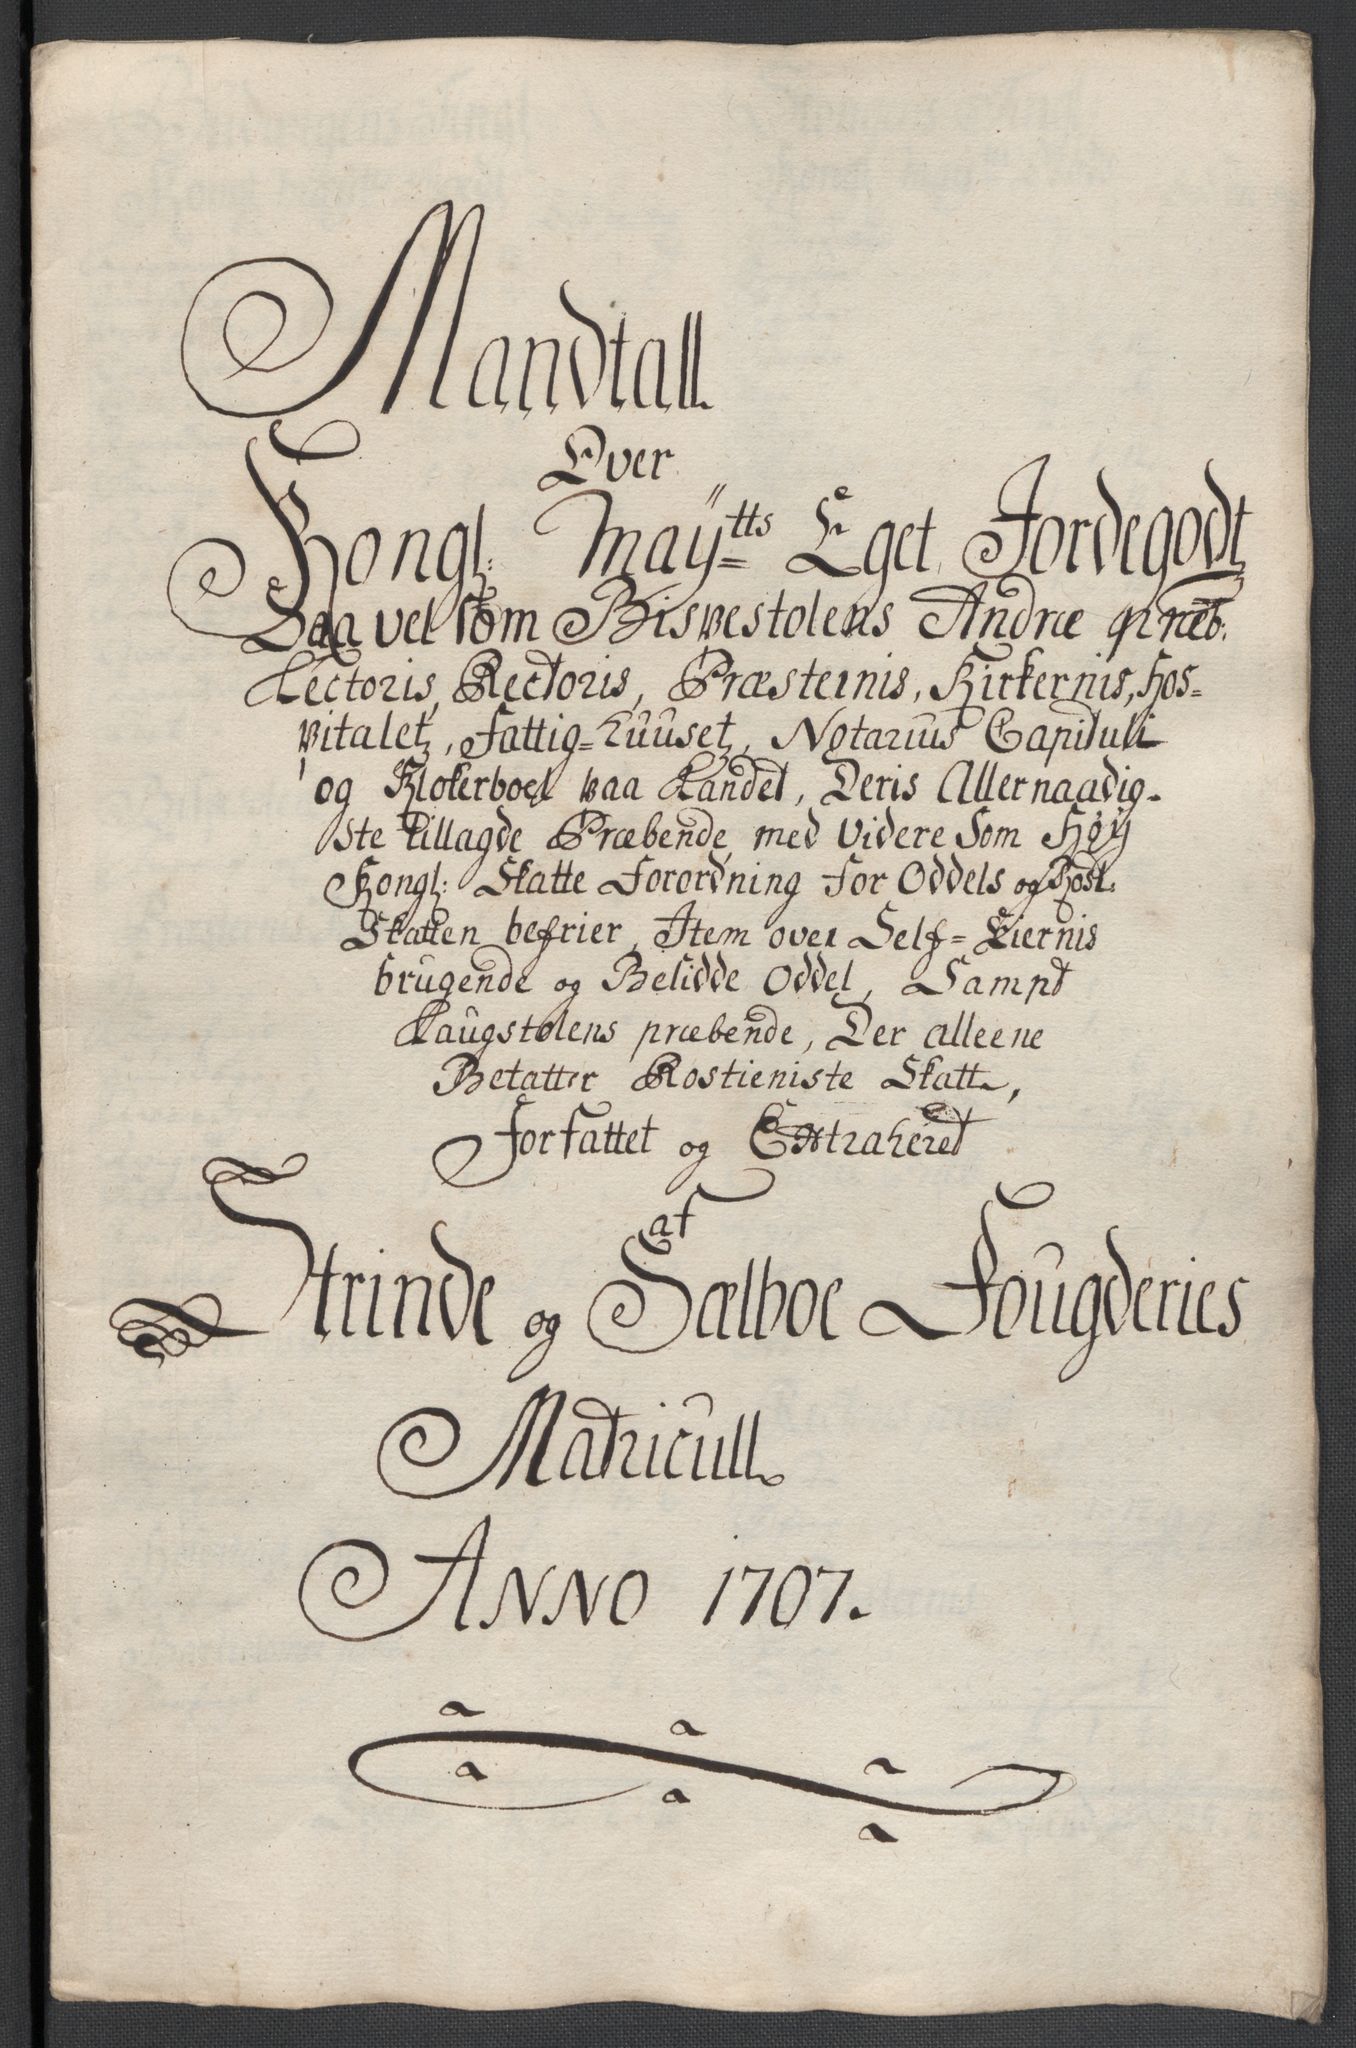 Mandtall
Over
Kongl: Maÿtts Eget Jordegodtz
Saa vel som Bispestolens Andræ præb:
Lectoris, Rectoris, Præsternis, Kirkernis, Hos=
pitaletz, Fattig=Huusetz, Notarius Capituli
og Klokerboel paa Landet, Deris Allernaadig-
ste tillagde Præbende, med videre Som Høy
Kongl: Skatte Forordning for Oddels og Rostt:
Skatten befrier, Item over Self=Eiernis
brugende og Besidde Oddel, Sampt
Laugstolens præbende, Der alleene
Betatter Rostieniste Skatt,
Forfattet og Extraheret
af
Strinde og Sælboe Fougderies
Matricull
ANNO 1707.